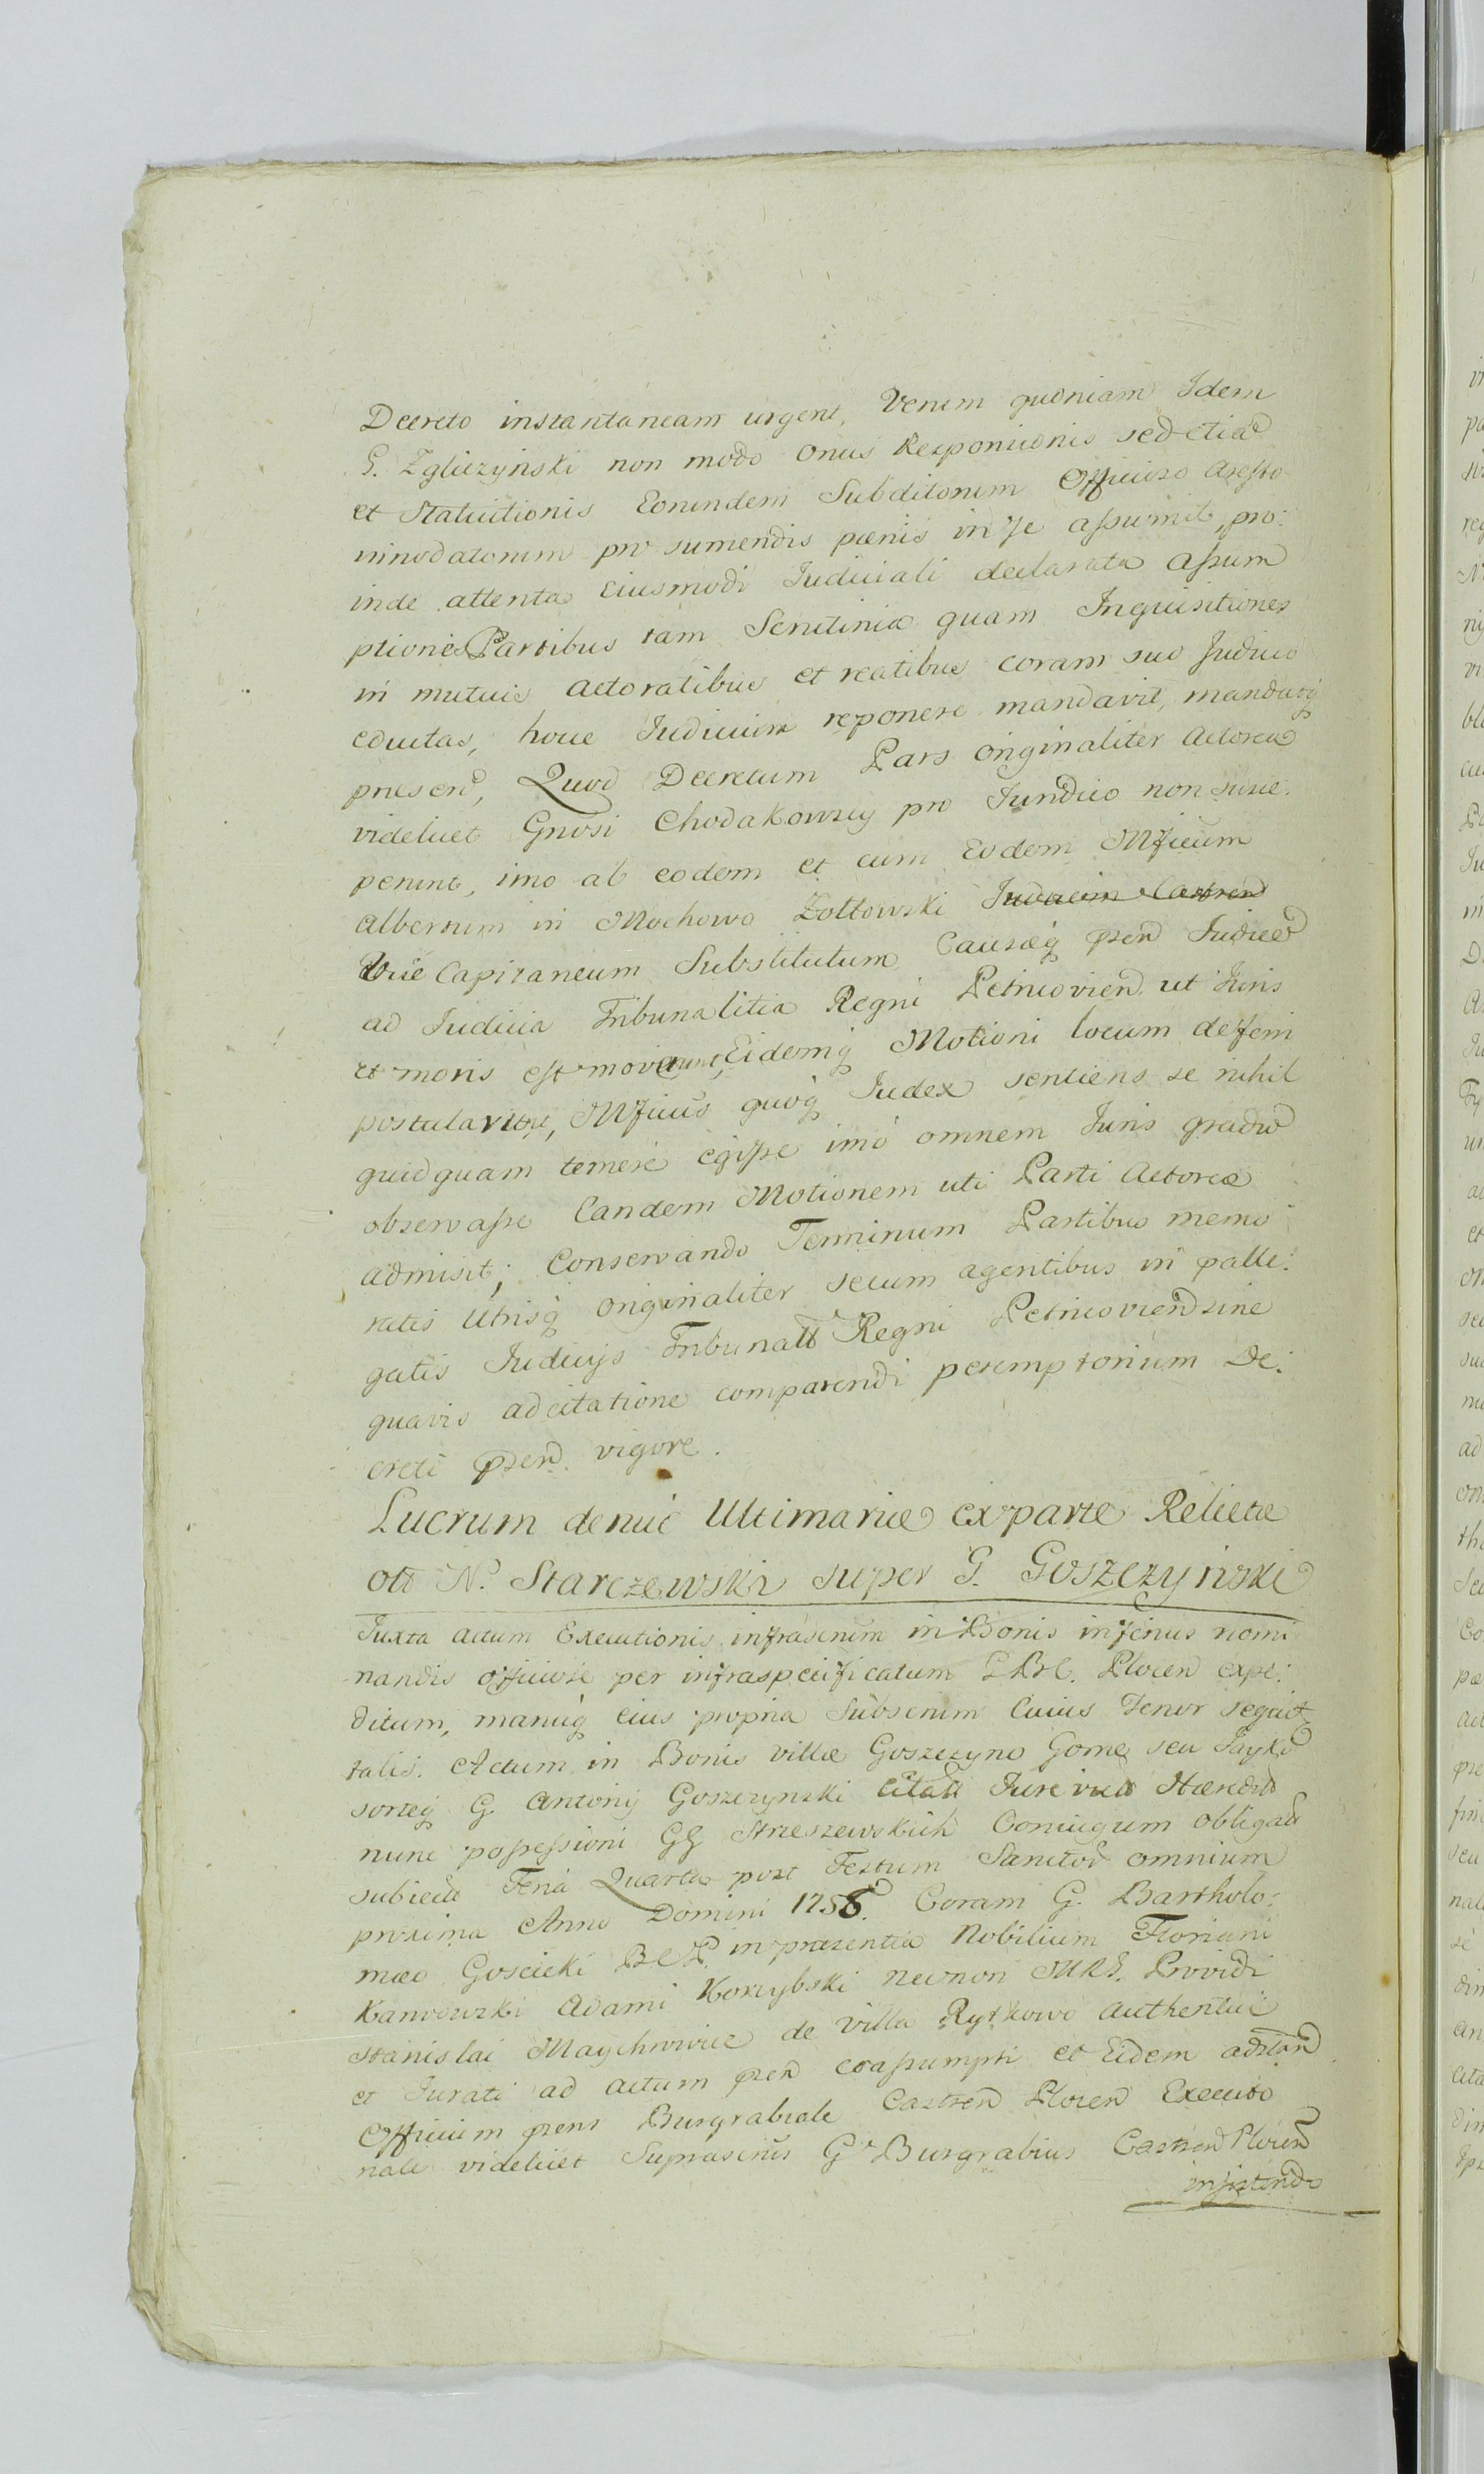 Decreto instantaneam urgent, Verum quoniam Idem
G. Zgliczyński non modo onus Responsionis sed etia
et Statuitionis Eorundem Subditorum Officioso Aresto
innodatorum pro sumendis pœnis in se assumit, pro:
inde attenta Eiusmodi Iudiciali declarata assum
ptione Partibus tam Scrutinia quam Inquisitiones
in mutuis Actoratibus et reatibus coram suo Iudicio
eductas, hocce Iudicium reponere mandavit, mandatq
presen, Quod Decretum Pars originaliter Actorea
videlicet Gnosi Chodakowscy pro Iuridico non susce:
perunt, imo ab eodem et cum Eodem Mficum
Albertum in Mochowo Zołtowski Iudicem Castren
Vice Capitaneum Substitutum Causæq psen Iudice
ad Iudicia Tribunalitia Regni Petricovien ut Iuris
et moris est moverunt, Eidemq Motioni locum deferri
postularunt, Mficus quoq Iudex sentiens se nihil
quidquam temere egisse imò omnem Iuris gradu
observasse Eandem Motionem uti Parti Actoreæ
admisit; Conservando Terminum Partibus memo
ratis Utrisq originaliter secum agentibus in palle:
gatis Iudicijs Tribunall Regni Petricovien sine
quavis adcitatione comparendi peremptorium De:
creti psen vigore.
Lucrum denuò Ultimariæ ex parte Relictæ
olt N. Starczewski super G. Goszczyński
Iuxta Actum Executionis infrascrum in Bonis inferius nomi
nandis officiose per infraspecificatum BC. Plocen expe:
ditum, manuq eius propria Subscrum Cuius Tenor sequit
talis. Actum in Bonis villæ Goszczyno Gorne seu Jayki
sorteq G. Antonij Goszczynski citati Iure victi Hæredit
nunc possessioni GG Strzeszewskich Coniugum obligat
subiecte Feria Quarta post Festum Sanctor omnium
proxima Anno Domini 1758. Coram G. Bartholo:
mæo Goscicki BCP. in præsentia Nobilium Floriani
Karwowski Adami Korzybski necnon MRG. Providi
Stanislai Maychrowicz de Villa Rytkowo authentici
et Iurati ad actum psen coassumpti et Eidem adstan
Officium psens Burgrabiale Castren Plocen Executo
riale videlicet Suprascrus G. Burgrabius Castren Plocen
insistendo